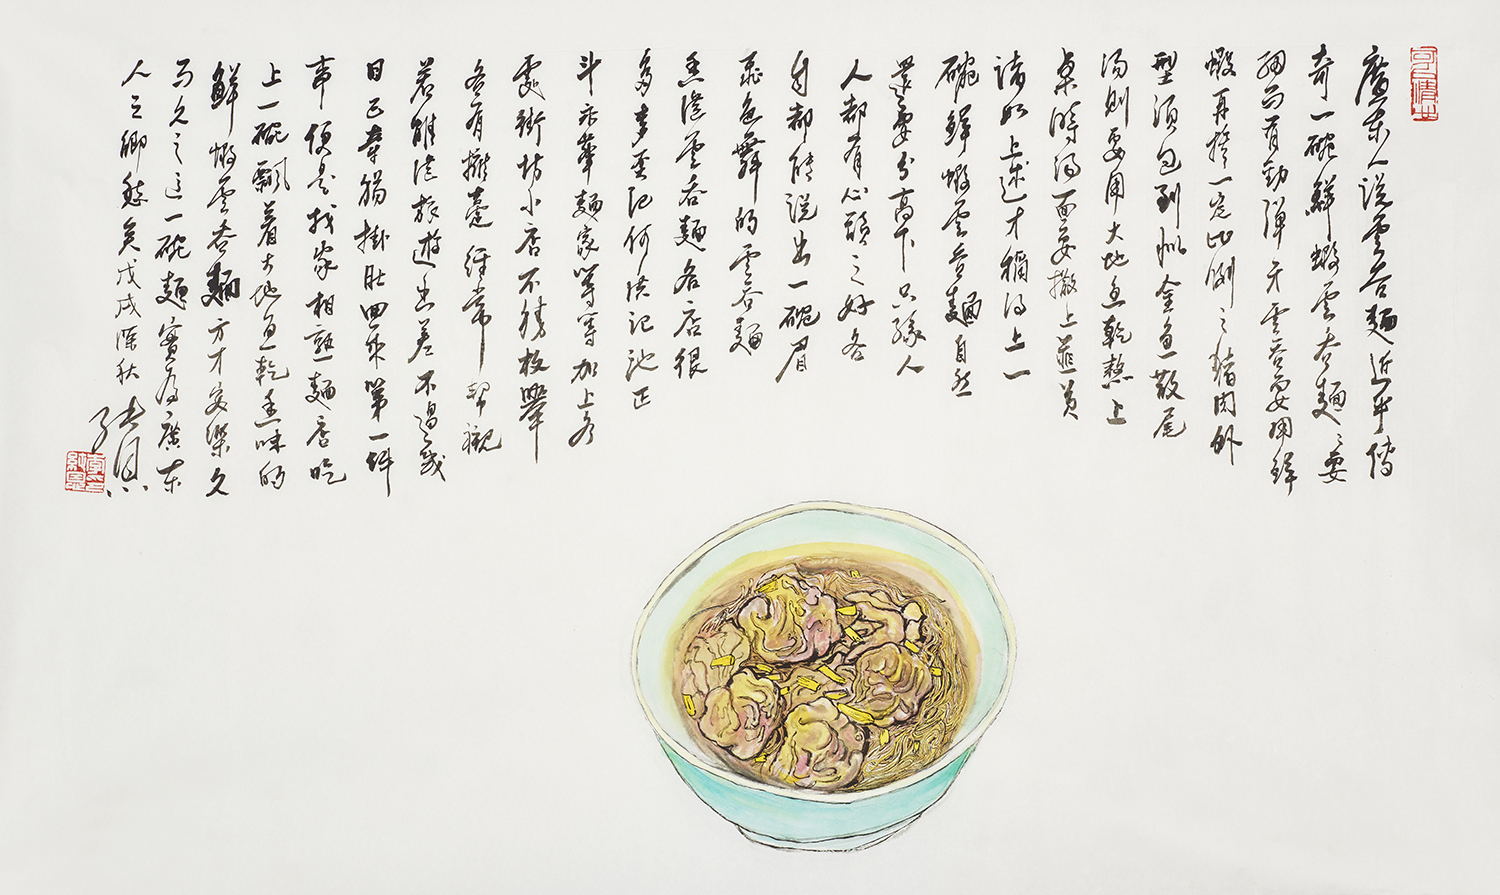 廣東人説雲吞麵近乎傳
奇一碗鮮蝦雲吞麵麵要
細而有勁彈牙雲吞要用鮮
蝦再搭一定比例之豬肉外
型須包到似金魚散尾
湯則要用大地魚乾熬上
桌時湯面要撒上韮黃
諸如上述才稱得上一
碗鮮蝦雲吞麵自然
還要分高下只緣人
人都有心頭之好各
自都能説出一碗眉
飛色舞的雲吞麵
香港雲吞麵名店很
多麥奎記何洪記池記
斗永華麵家等等加上各
處街坊小店不勝枚舉
各有擁躉經常幫襯
若離港旅遊出差不過幾
日已牽腸掛肚回來第一件
事便是找家相熟麵店吃
上一碗飄着大地魚乾香味的
鮮蝦雲吞麵方才安樂久
而久之這一碗麵實爲廣東
人之鄉愁矣戊戌深秋